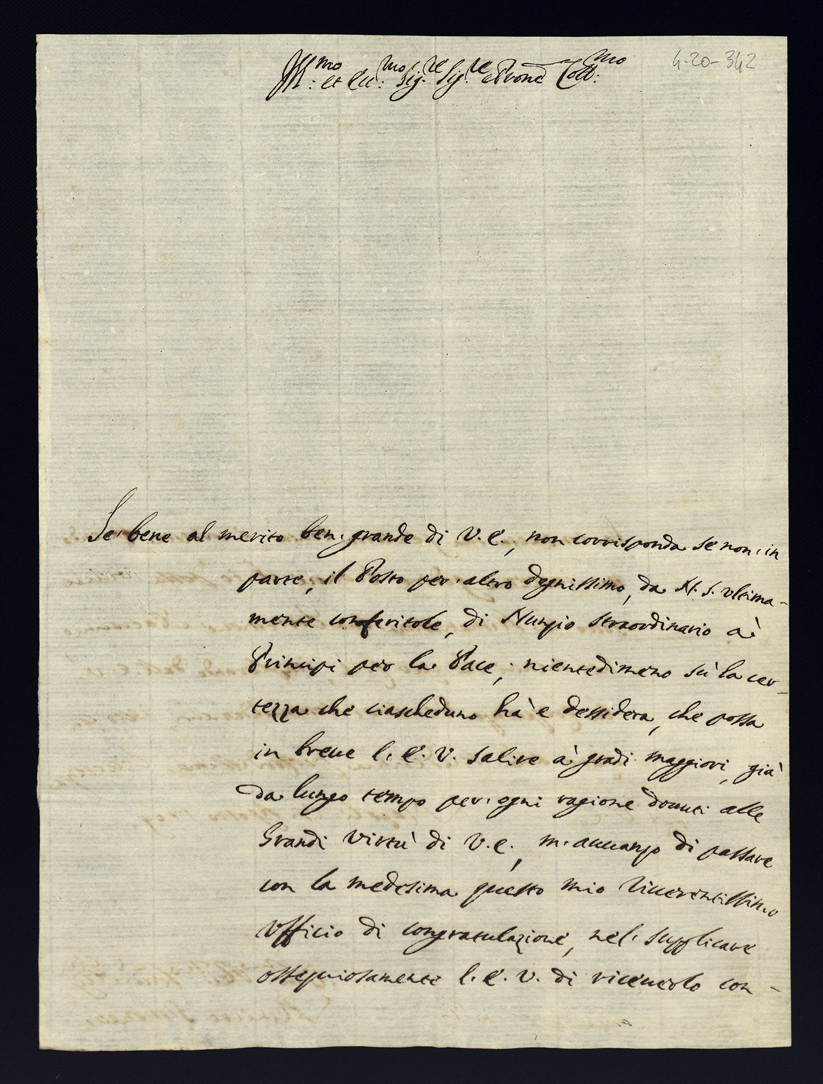 Ill.mo et Ecc.mo Sig.re Sig.re e Pron.e Coll.mo
4-20-342
Se bene al merito ben grande di V. E., non corrisponda se non in
parte, il Posto per altro degnissimo, da N. S. ultima-
mente conferitole, di Nunzio straordinario a'
Principi per la Pace; nientedimeno sù la cer-
tezza che ciascheduno hà e dessidera, che possa
in breue l. E. V. salire à gradi maggiori, già
da lungo tempo per ogni ragione douuti alle
Grandi Virtù di V. E., m'auuanzo di passare
con la medesima questo mio riuerentissimo
Ufficio di congratulazione, nel supplicare
ossequiosamente l. E. V. di riceuerlo con-